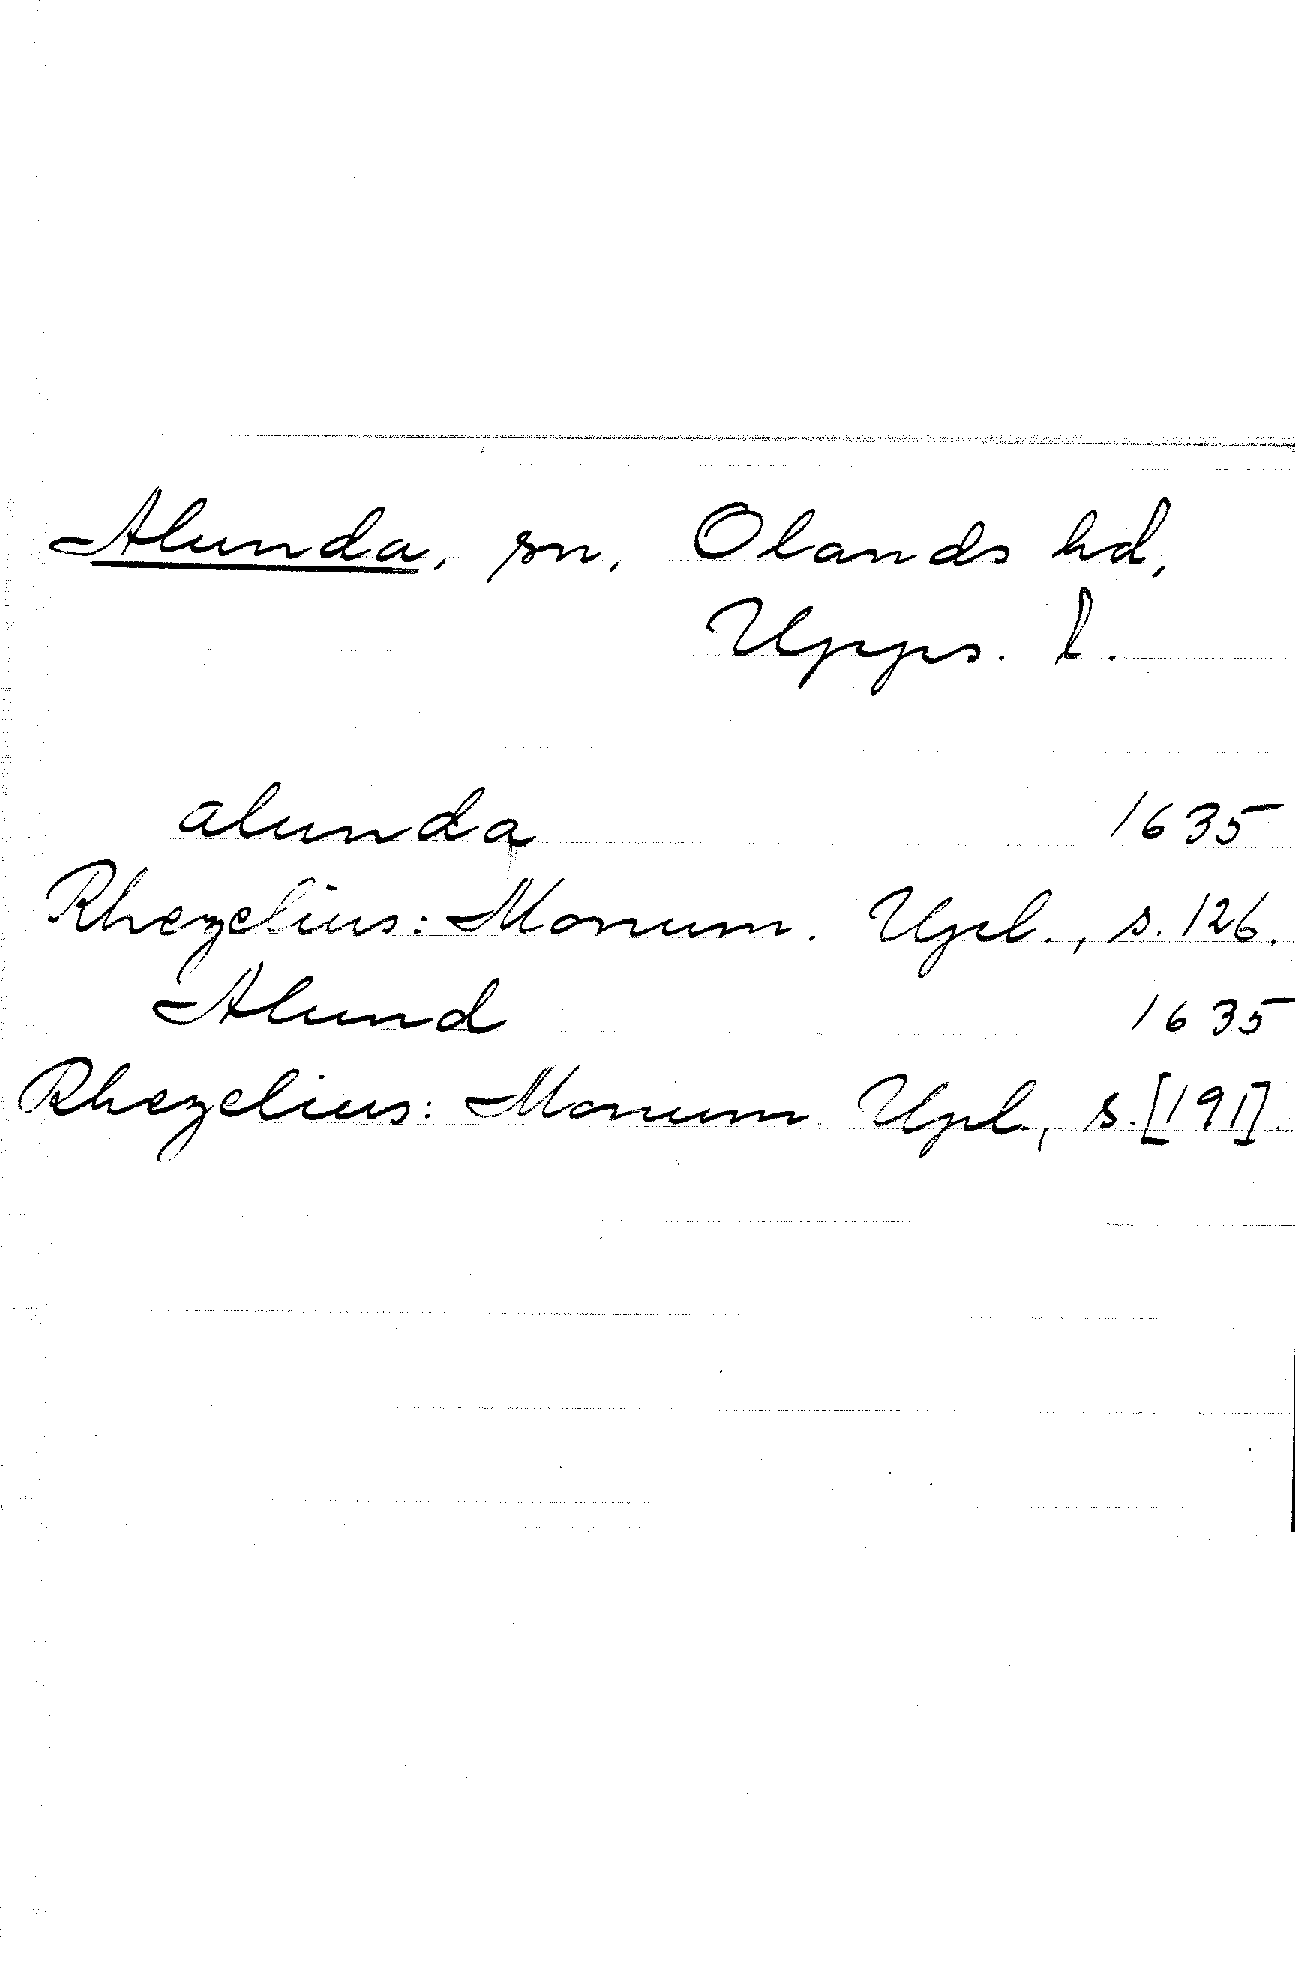 Alunda, sn, Olands hd,
Upps. l.
alunda 1635
Rhezelius: Monum. Upl., s. 126.
Alund 1635
Rhezelius: Monum. Upl., s. [191].